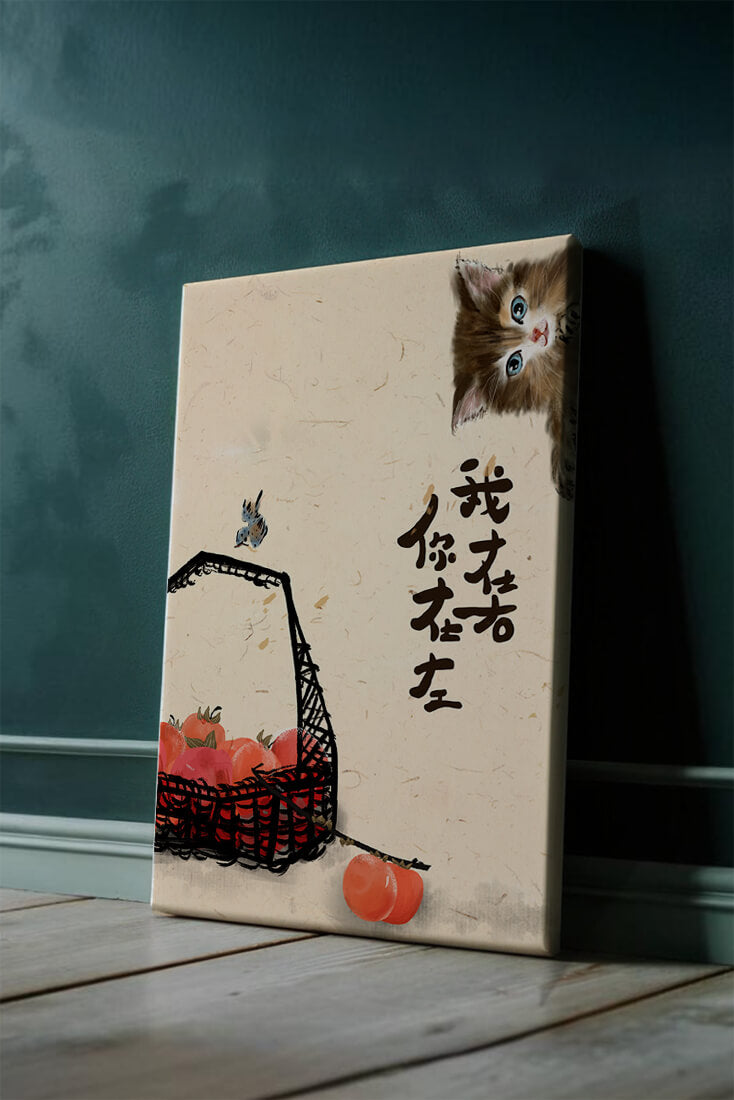 我在右
你在左